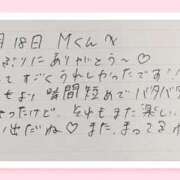 月18日 Mくんへ
ぶりにありがとう〜♡
てすごくうれしかったです
もより時間短めでバタバタ
なったけど、それもまた楽しい
い出だね♡また、まってるね